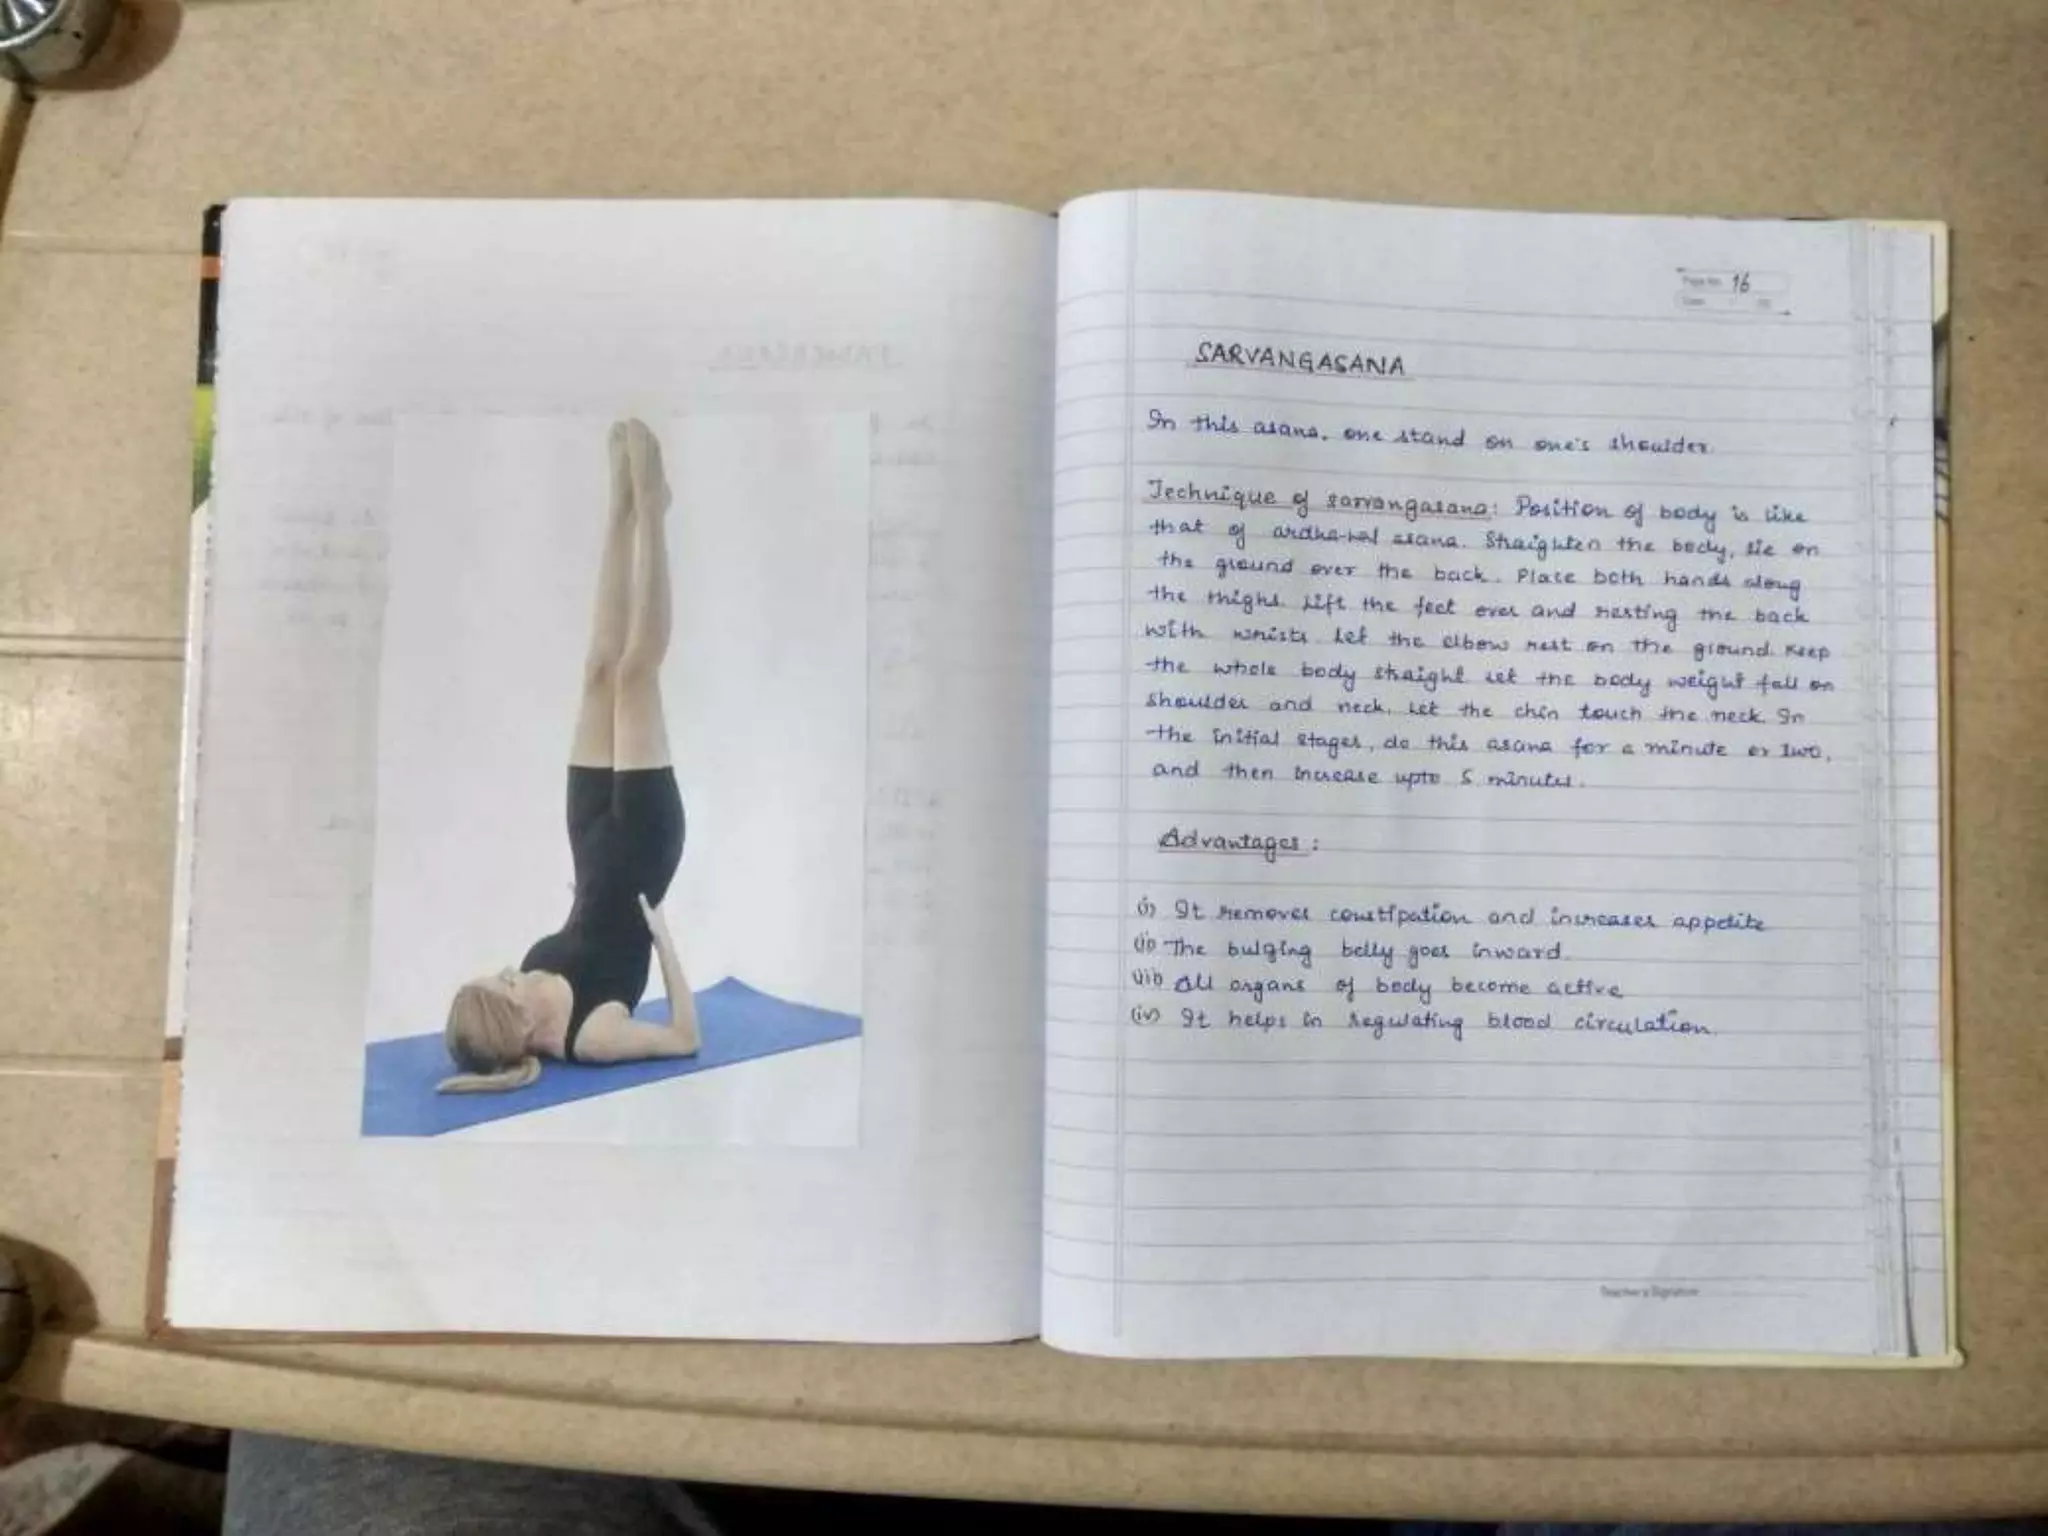 Page No. 16
Date
SARVANGASANA
In this asana, one stand on one's shoulder.
Technique of sarvangasana: Position of body is like
that of ardha-hal asana. Straighten the body, lie on
the ground over the back. Place both hands along
the thighs. Lift the feet over and resting the back
with wrists. Let the elbow rest on the ground. Keep
the whole body straight let the body weight fall on
shoulder and neck. Let the chin touch the neck. In
the initial stages, do this asana for a minute or two,
and then increase upto 5 minutes.
Advantages :
(i) It removes constipation and increases appetite
(ii) The bulging belly goes inward.
(iii) All organs of body become active
(iv) It helps in regulating blood circulation.
Teacher's Signature